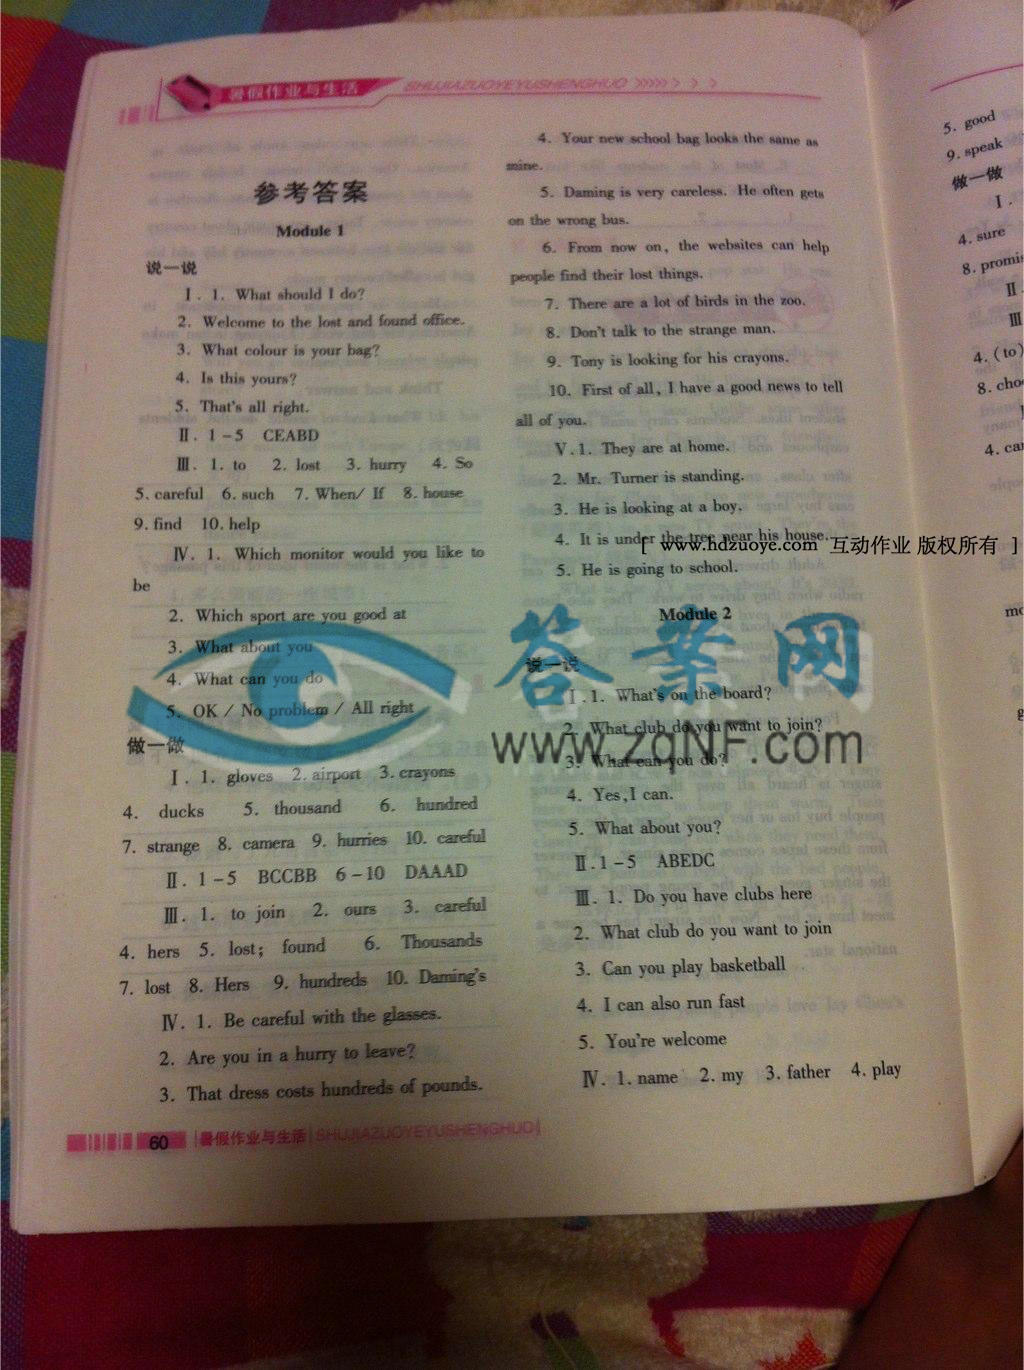 暑假作业与生活 SHUJIAZUOYEYUSHENGHUO
参考答案
Module 1
说一说
Ⅰ. 1. What should I do?
2. Welcome to the lost and found office.
3. What colour is your bag?
4. Is this yours?
5. That's all right.
Ⅱ. 1-5 CEABD
Ⅲ. 1. to 2. lost 3. hurry 4. So
5. careful 6. such 7. When/ If 8. house
9. find 10. help
Ⅳ. 1. Which monitor would you like to
be
2. Which sport are you good at
3. What about you
4. What can you do
5. OK / No problem / All right
做一做
Ⅰ. 1. gloves 2. airport 3. crayons
4. ducks 5. thousand 6. hundred
7. strange 8. camera 9. hurries 10. careful
Ⅱ. 1-5 BCCBB 6-10 DAAAD
Ⅲ. 1. to join 2. ours 3. careful
4. hers 5. lost; found 6. Thousands
7. lost 8. Hers 9. hundreds 10. Daming's
Ⅳ. 1. Be careful with the glasses.
2. Are you in a hurry to leave?
3. That dress costs hundreds of pounds.
4. Your new school bag looks the same as
mine.
5. Daming is very careless. He often gets
on the wrong bus.
6. From now on, the websites can help
people find their lost things.
7. There are a lot of birds in the zoo.
8. Don't talk to the strange man.
9. Tony is looking for his crayons.
10. First of all, I have a good news to tell
all of you.
Ⅴ. 1. They are at home.
2. Mr. Turner is standing.
3. He is looking at a boy.
4. It is under the tree near his house.
[ www.hdzuoye.com 互动作业 版权所有 ]
5. He is going to school.
Module 2
答案网
www.zqNF.com
说一说
Ⅰ. 1. What's on the board?
2. What club do you want to join?
3. What can you do?
4. Yes,I can.
5. What about you?
Ⅱ. 1-5 ABEDC
Ⅲ. 1. Do you have clubs here
2. What club do you want to join
3. Can you play basketball
4. I can also run fast
5. You're welcome
Ⅳ. 1. name 2. my 3. father 4. play
60 暑假作业与生活 SHUJIAZUOYEYUSHENGHUO
5. good
9. speak
做一做
Ⅰ.
4. sure
8. promis
Ⅱ.
Ⅲ
4. (to)
8. choo
4. car